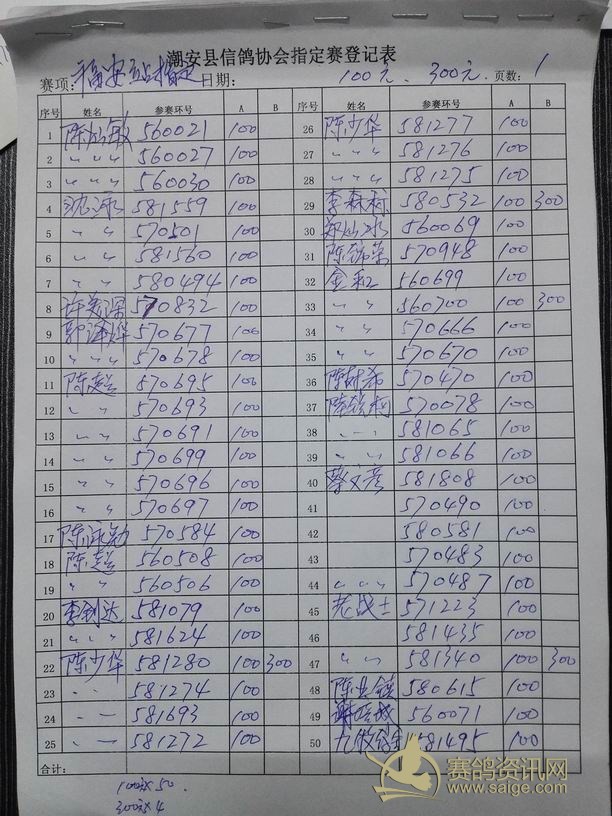 潮安县信鸽协会指定赛登记表
赛项: 福安站指定 日期: 100元. 300元. 页数: 1
序号 姓名 参赛环号 A B 序号 姓名 参赛环号 A B
1 陈 敏 560021 100 26 陈少华 581277 100
2 〃 〃 〃 560027 100 27 〃 〃 581276 100
3 〃 〃 〃 560030 100 28 〃 〃 581275 100
4 沈 581559 100 29 李森 580532 100 300
5 〃 〃 570501 100 30 郑 冰 560069 100
6 〃 〃 581560 100 31 陈 荣 570948 100
7 〃 〃 580494 100 32 金和 560699 100
8 许 深 570832 100 33 〃 〃 560700 100 300
9 郭 570677 100 34 〃 〃 570666 100
10 〃 〃 〃 570678 100 35 〃 〃 570670 100
11 陈 570695 100 36 陈 希 570470 100
12 〃 〃 570693 100 37 陈 570078 100
13 〃 〃 570691 100 38 〃 〃 581065 100
14 〃 〃 570699 100 39 〃 〃 581066 100
15 〃 〃 570696 100 40 蔡文彦 581808 100
16 〃 〃 570697 100 41 570490 100
17 陈 570584 100 42 580581 100
18 陈 560508 100 43 570483 100
19 〃 〃 560506 100 44 〃 〃 570487 100
20 李剑达 581079 100 45 老战士 571223 100
21 〃 〃 〃 581624 100 46 581435 100
22 陈少华 581280 100 300 47 〃 〃 581340 100 300
23 〃 〃 581274 100 48 陈 镇 580615 100
24 〃 〃 581693 100 49 560071 100
25 〃 〃 581272 100 50 九 581495 100
合计:
100元x50.
300元x4
赛鸽资讯网
www.saige.com